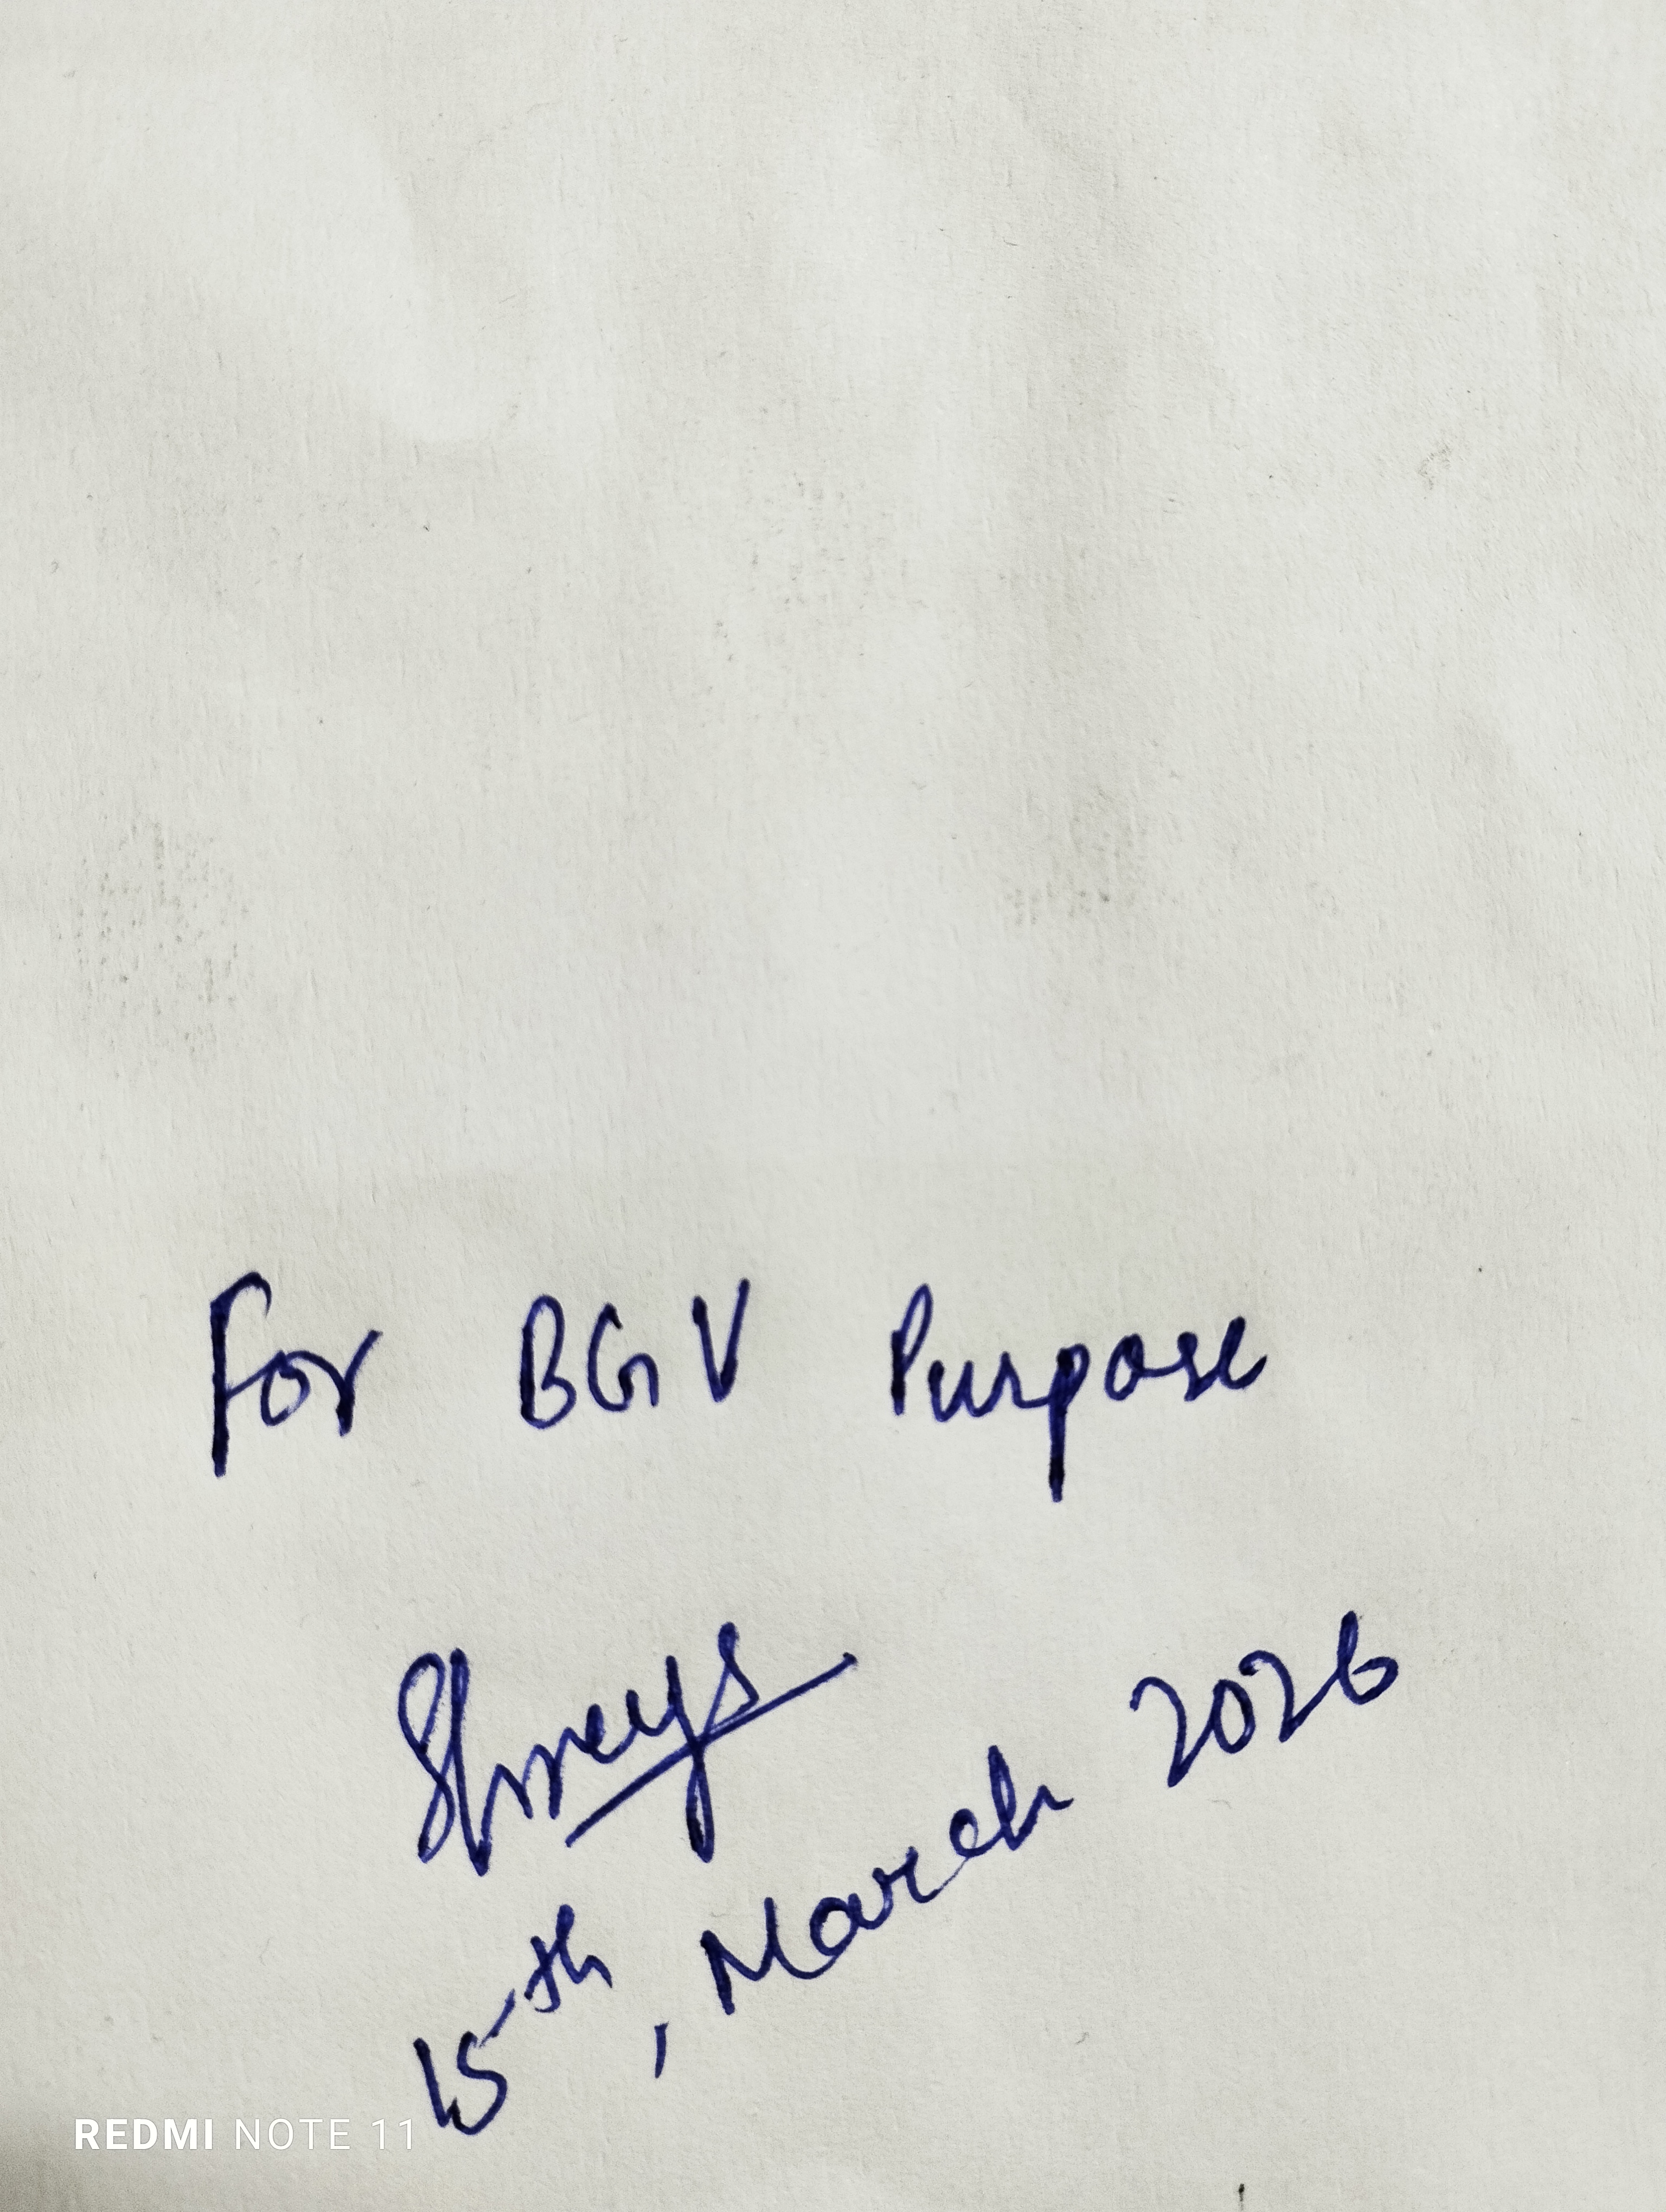 For BGV Purpose
Shreys
15th, March 2026
REDMI NOTE 11